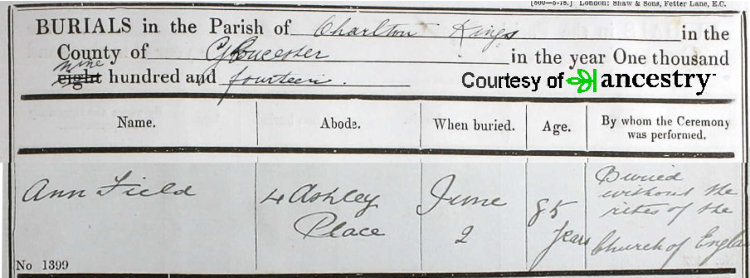 [800—5-18.] London: Shaw & Sons, Fetter Lane, E.C.
BURIALS in the Parish of Charlton Kings in the
County of Gloucester in the year One thousand
nine
eight hundred and fourteen.
Courtesy of ancestry
Name. Abode. When buried. Age. By whom the Ceremony was performed.
Ann Field 4 Ashley Place June 2 85 years Buried without the rites of the Church of Engla
No 1399